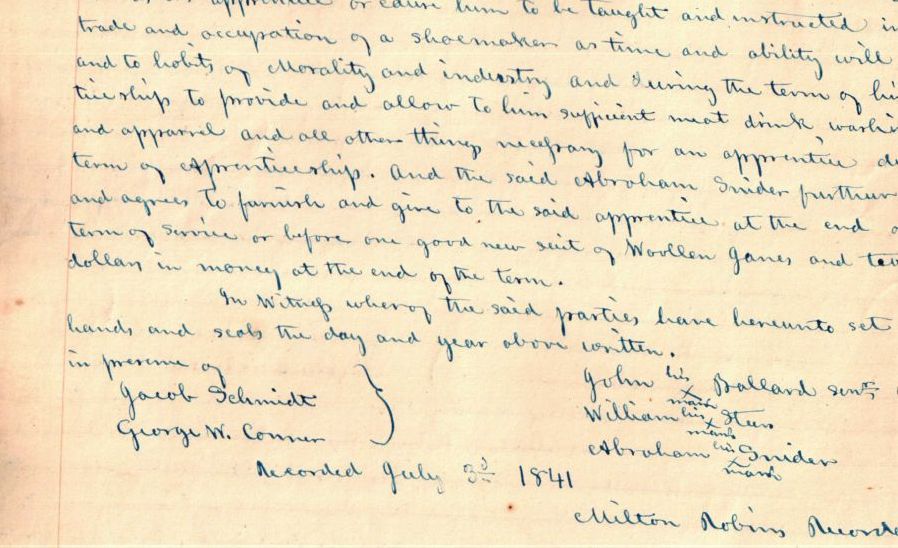 apprentice or cause him to be taught and instructed in
trade and occupation of a shoemaker as time and ability will
and to habits of Morality and industry and during the term of his
ticeship to provide and allow to him sufficient meat drink washi
and apparrel and all other things necessary for an apprentice du
term of Apprenticeship. And the said Abraham Snider further
and agrees to furnish and give to the said apprentice at the end o
term of service or before one good new suit of Woollen Janes and
dollars in money at the end of the term.
In Witness wherof the said parties have hereunto set
hands and seals the day and year above written.
in presence of
Jacob Schmidt
George W. Conner
John his x mark Ballard
William his x mark
Abraham his x mark Snider
Recorded July 3d 1841
Milton Robins Recorde